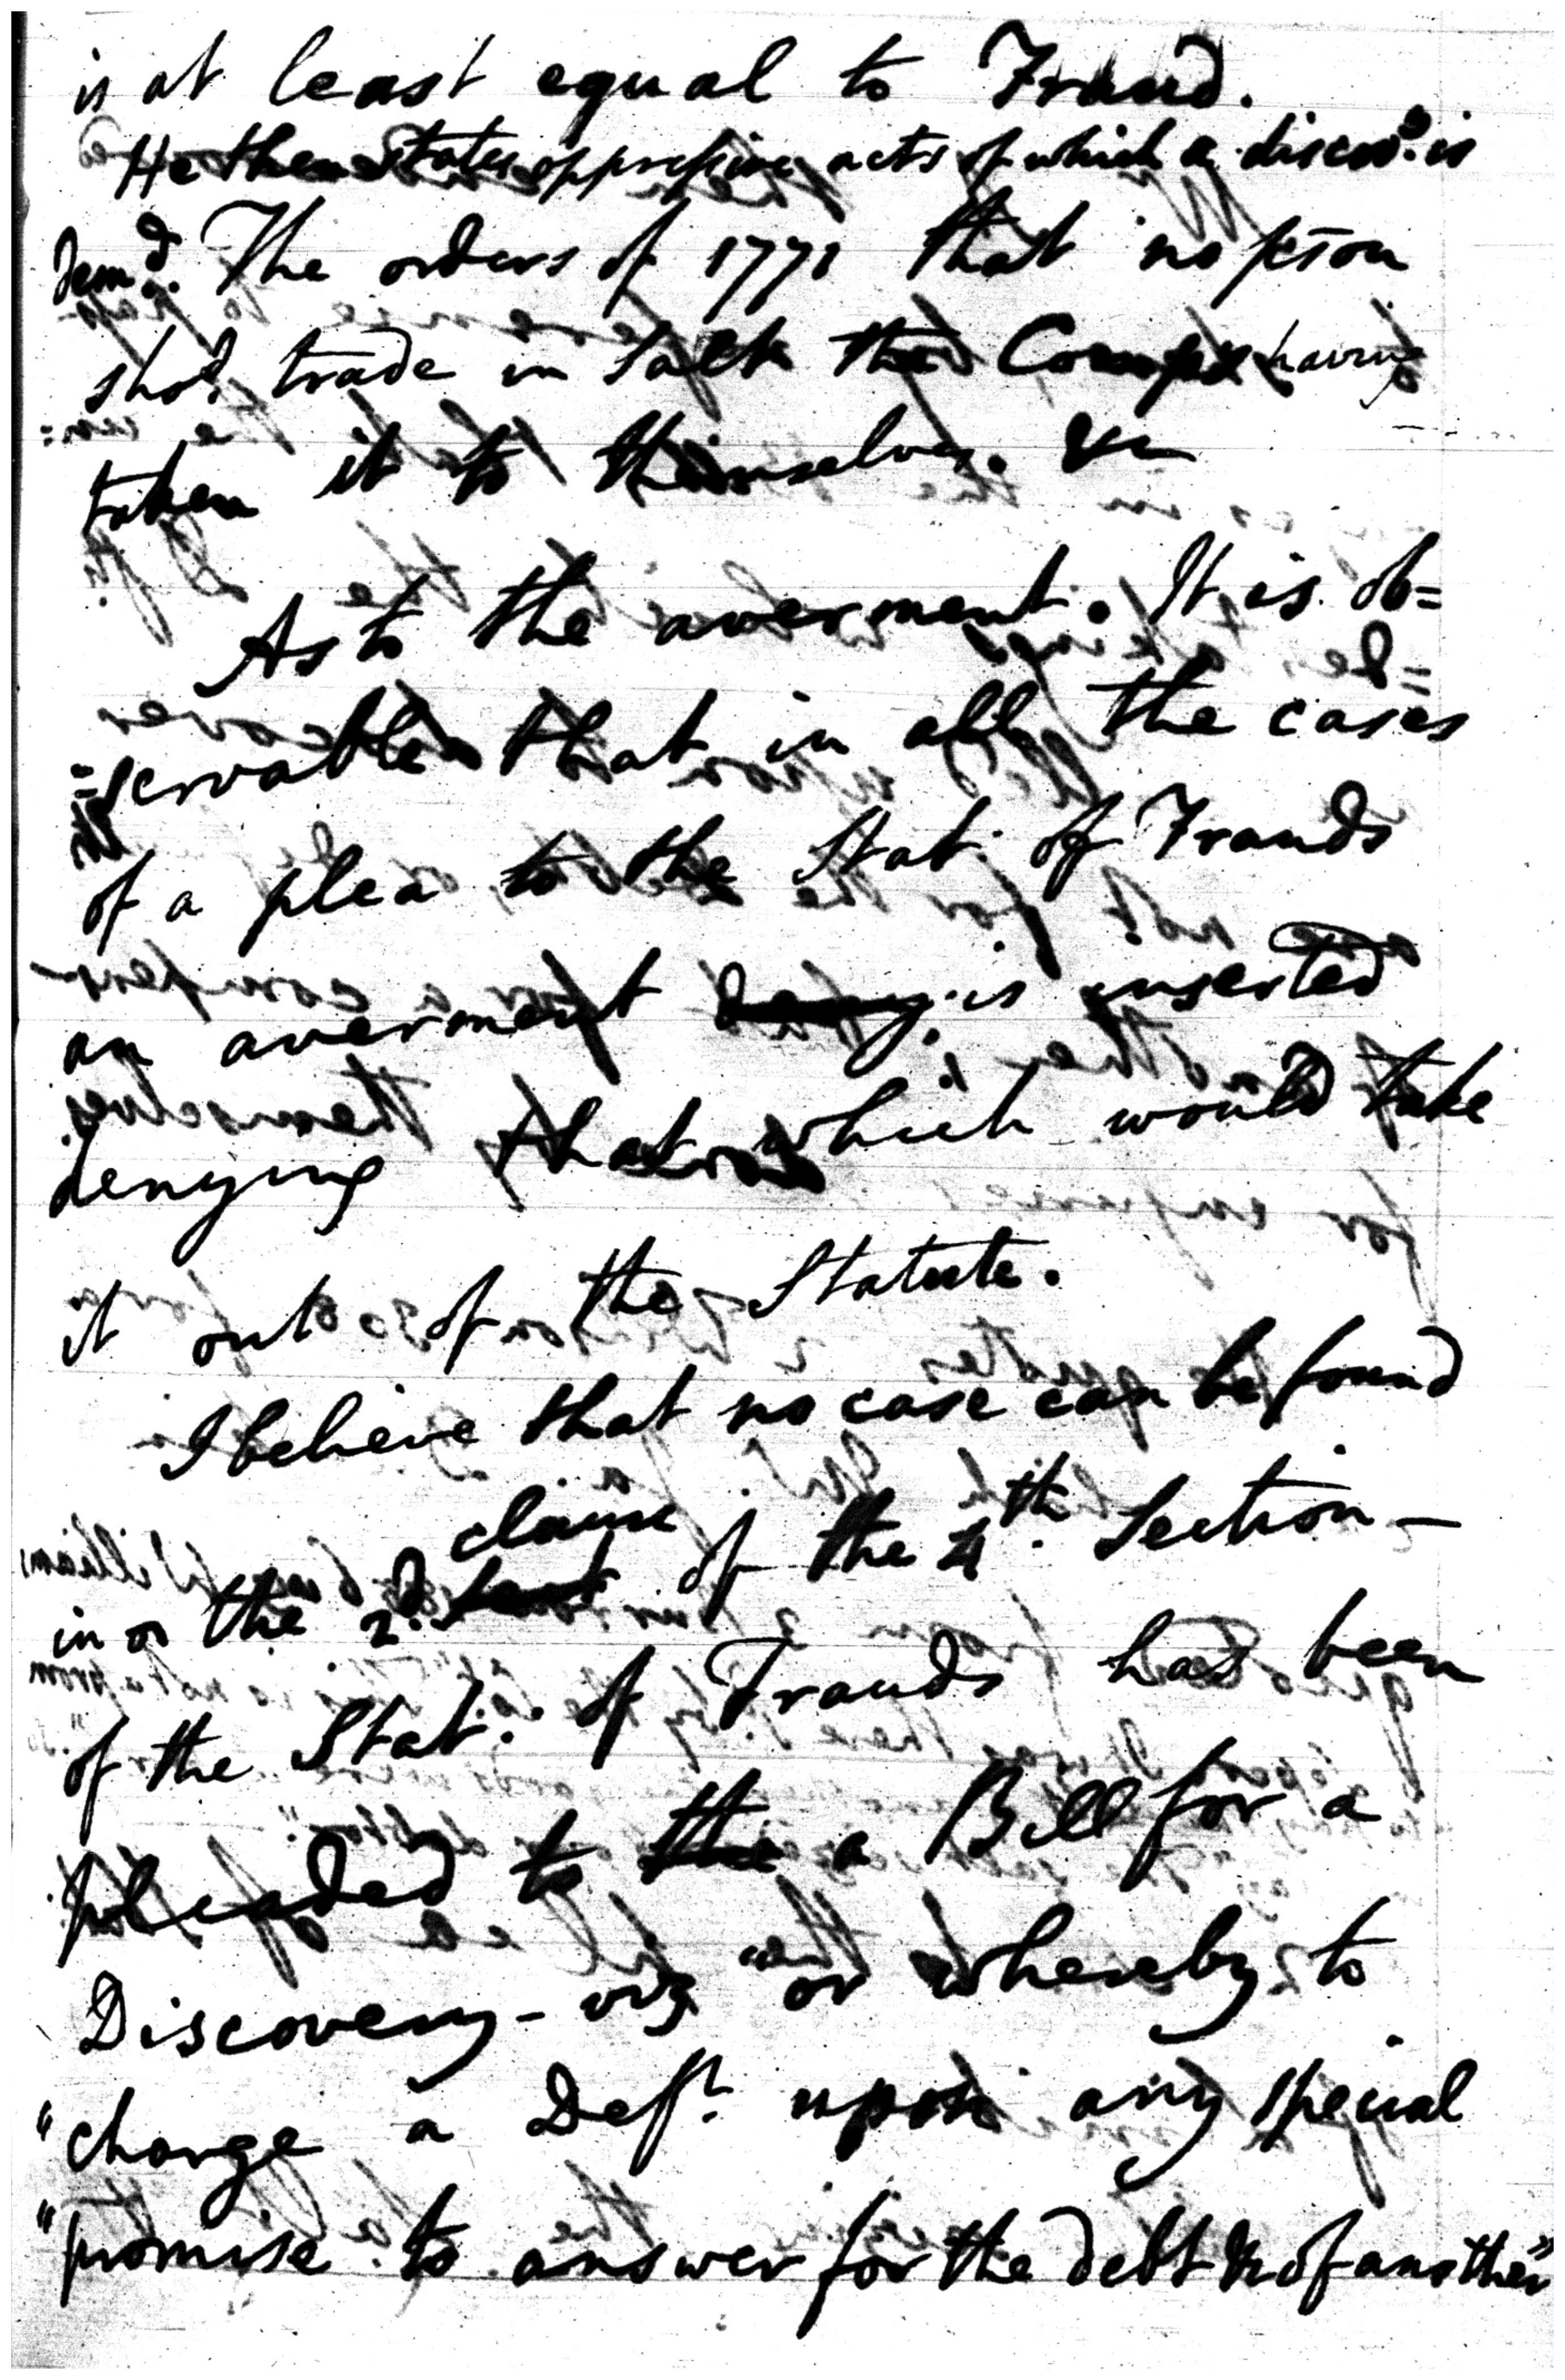 is at least equal to Fraud.
He then States oppressive acts of which a discov.y is
dem.d. The orders of 1771 that no pson
shod. trade in Salt the Compy having
taken it to themselves. &c
As to the averment. It is ob=
=servable that in all the cases
of a plea to the Stat: of Frauds
an averment is inserted
denying that which would take
it out of the Statute.
I believe that no case can be found
clause
in or the 2d. of the 4th. Section—
of the Stat: of Frauds has been
pleaded to the a Bill for a
Discovery - viz "or whereby to
"charge a Deft. upon any special
"promise to answer for the debt &c of another"